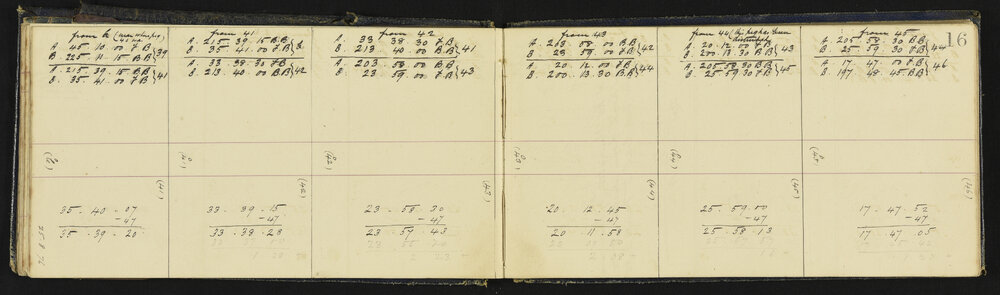 from 41
A. 45. 10. 00 F.B
B. 225. 11. 15 B.B } 39
A. 215. 39. 15 B.B
B. 35. 41. 00 F.B } 41
A. 215. 39. 15 B.B
B. 35. 41. 00 F.B
A. 33. 38. 30 F.B
B. 213. 40. 00 B.B } 42
from 42
A. 33. 38. 30 F.B
B. 213. 40. 00 B.B } 41
A. 203. 58. 00 B.B
B. 23. 59. 00 F.B } 43
from 43
A. 203. 58. 00 B.B
B. 23. 59. 00 F.B } 42
A. 20. 12. 00 F.B
B. 200. 13. 30 B.B } 44
from 44
A. 20. 12. 00 F.B
B. 200. 13. 30 B.B } 43
A. 205. 58. 30 B.B
B. 25. 59. 30 F.B } 45
from 45
A. 205. 58. 30 B.B
B. 25. 59. 30 F.B } 44
A. 17. 47. 00 F.B
B. 197. 48. 45 B.B } 46
16
(41)
(42)
(43)
(44)
(45)
(41)
(42)
(43)
(44)
(45)
(46)
35. 40. 07
- 47
35. 39. 20
33. 39. 15
- 47
33. 38. 28
23. 58. 30
- 47
23. 57. 43
20. 12. 45
- 47
20. 11. 58
25. 59. 00
- 47
25. 58. 13
17. 47. 52
- 47
17. 47. 05